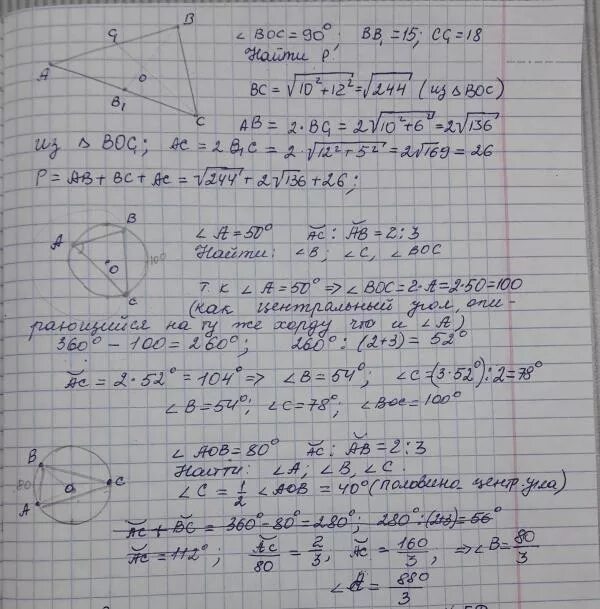 ∠BOC = 90°; BB₁ = 15; CC₁ = 18
Найти P.
BC = √(10² + 12²) = √244 (из △BOC)
AB = 2·BC₁ = 2√(10² + 6²) = 2√136
из △BOC₁; AC = 2B₁C = 2·√(12² + 5²) = 2√169 = 26
P = AB + BC + AC = √244 + 2√136 + 26;
A
B
C
C₁
B₁
O
∠A = 50° A͝C : A͝B = 2:3
Найти: ∠B; ∠C, ∠BOC
т.к ∠A = 50° => ∠BOC = 2·A = 2·50 = 100
(как центральный угол, опи-
рающийся на ту же хорду что и ∠A)
360° - 100 = 260°; 260° : (2+3) = 52°
A͝C = 2·52° = 104° => ∠B = 54°; ∠C = (3·52°) : 2 = 78°
∠B = 54°; ∠C = 78°; ∠BOC = 100°
A
B
O
C
100
∠AOB = 80° A͝C : A͝B = 2:3
Найти: ∠A; ∠B, ∠C.
∠C = 1/2 ∠AOB = 40° (половина центр. угла)
A͝C + B͝C = 360° - 80° = 280°; 280° : (2+3) = 56°
A͝C = 112°; A͝C/80 = 2/3, A͝C = 160/3; => ∠B = 80/3
∠A = 880/3
B
80
A
O
C